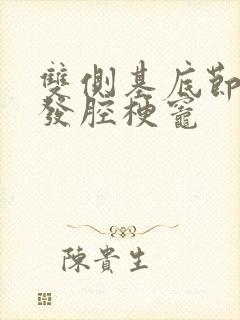 雙側基底節
發腔梗竈
陳貴生